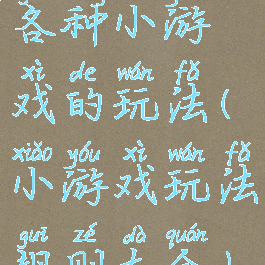 各种小游
xì de wán fǎ
戏的玩法(
xiǎo yóu xì wán fǎ
小游戏玩法
guī zé dà quán
规则大全)